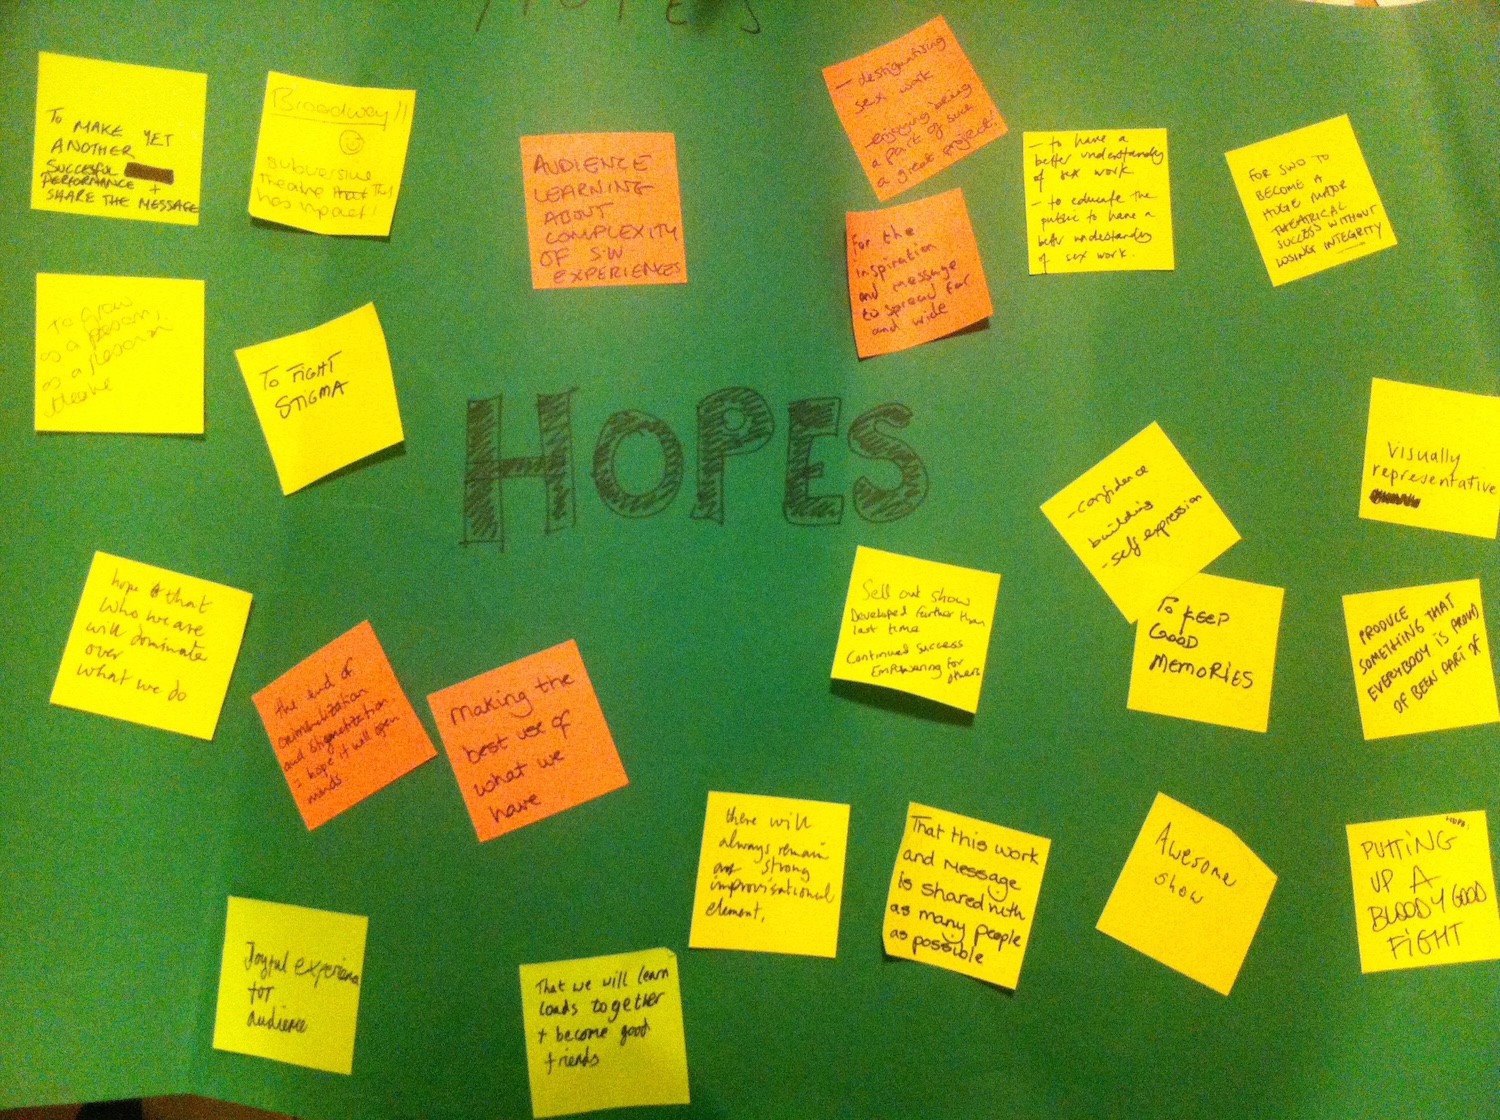 HOPES
To MAKE YET
ANOTHER
SUCCESFUL
PERFORMANCE +
SHARE THE MESSAGE
Broadway!!
subversive
theatre that
has impact!
AUDIENCE
LEARNING
ABOUT
COMPLEXITY
OF SW
EXPERIENCES
- destigmatising
sex work
- enjoying being
a part of such
a great project!
For the
inspiration
and message
to spread far
and wide
- to have a
better understanding
of sex work
- to educate the
public to have a
better understanding
of sex work.
FOR SWO TO
BECOME A
HUGE MAJOR
THEATRICAL
SUCCESS WITHOUT
LOSING INTEGRITY
To grow
as a person,
as a person in
theatre
To FIGHT
STIGMA
HOPES
- confidence
building
- self expression
Visually
representative
hope that
who we are
will dominate
over
what we do
the end of
criminalization
and stigmatization
I hope it will open
minds
making the
best use of
what we
have
Sell out show
Developed further than
last time
Continued success
Empowering for
others
To KEEP
GOOD
MEMORIES
PRODUCE
SOMETHING THAT
EVERYBODY IS PROUD
OF BEEN PART OF
there will
always remain
a strong
improvisational
element.
That this work
and message
is shared with
as many people
as possible
Awesome
show
HOPE:
PUTTING
UP A
BLOODY GOOD
FIGHT
Joyful experience
for
audience
That we will learn
loads together
+ become good
friends